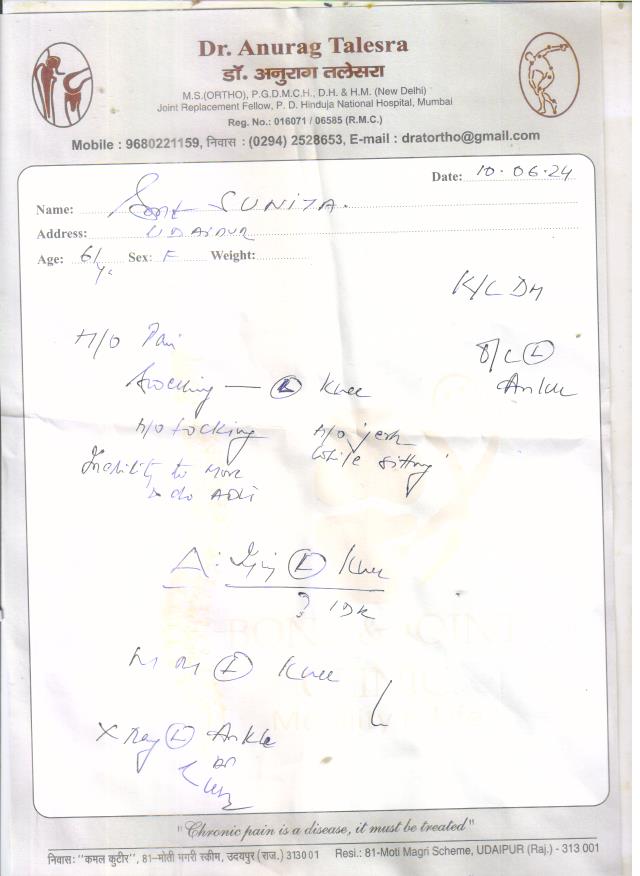 Dr. Anurag Talesra
डॉ. अनुराग तलेसरा
M.S.(ORTHO), P.G.D.M.C.H., D.H. & H.M. (New Delhi)
Joint Replacement Fellow, P. D. Hinduja National Hospital, Mumbai
Reg. No.: 016071 / 06585 (R.M.C.)
Mobile : 9680221159, निवास : (0294) 2528653, E-mail : dratortho@gmail.com
Date: 10.06.24
Name: SUNITA.
Address: UDAIPUR
Age: 61 Sex: F Weight:
K/C DM
H/O Pain
(L) Ankle
(L) Knee
H/O Locking H/O jerk
while sitting
Inability to move
& do ADLs
(L) Knee
? IDK
(L) Knee
X Ray (L) Ankle
BONE & JOINT
CLINIC
"Chronic pain is a disease, it must be treated"
निवास: "कमल कुटीर", 81-मोती मगरी स्कीम, उदयपुर (राज.) 313001 Resi.: 81-Moti Magri Scheme, UDAIPUR (Raj.) - 313 001